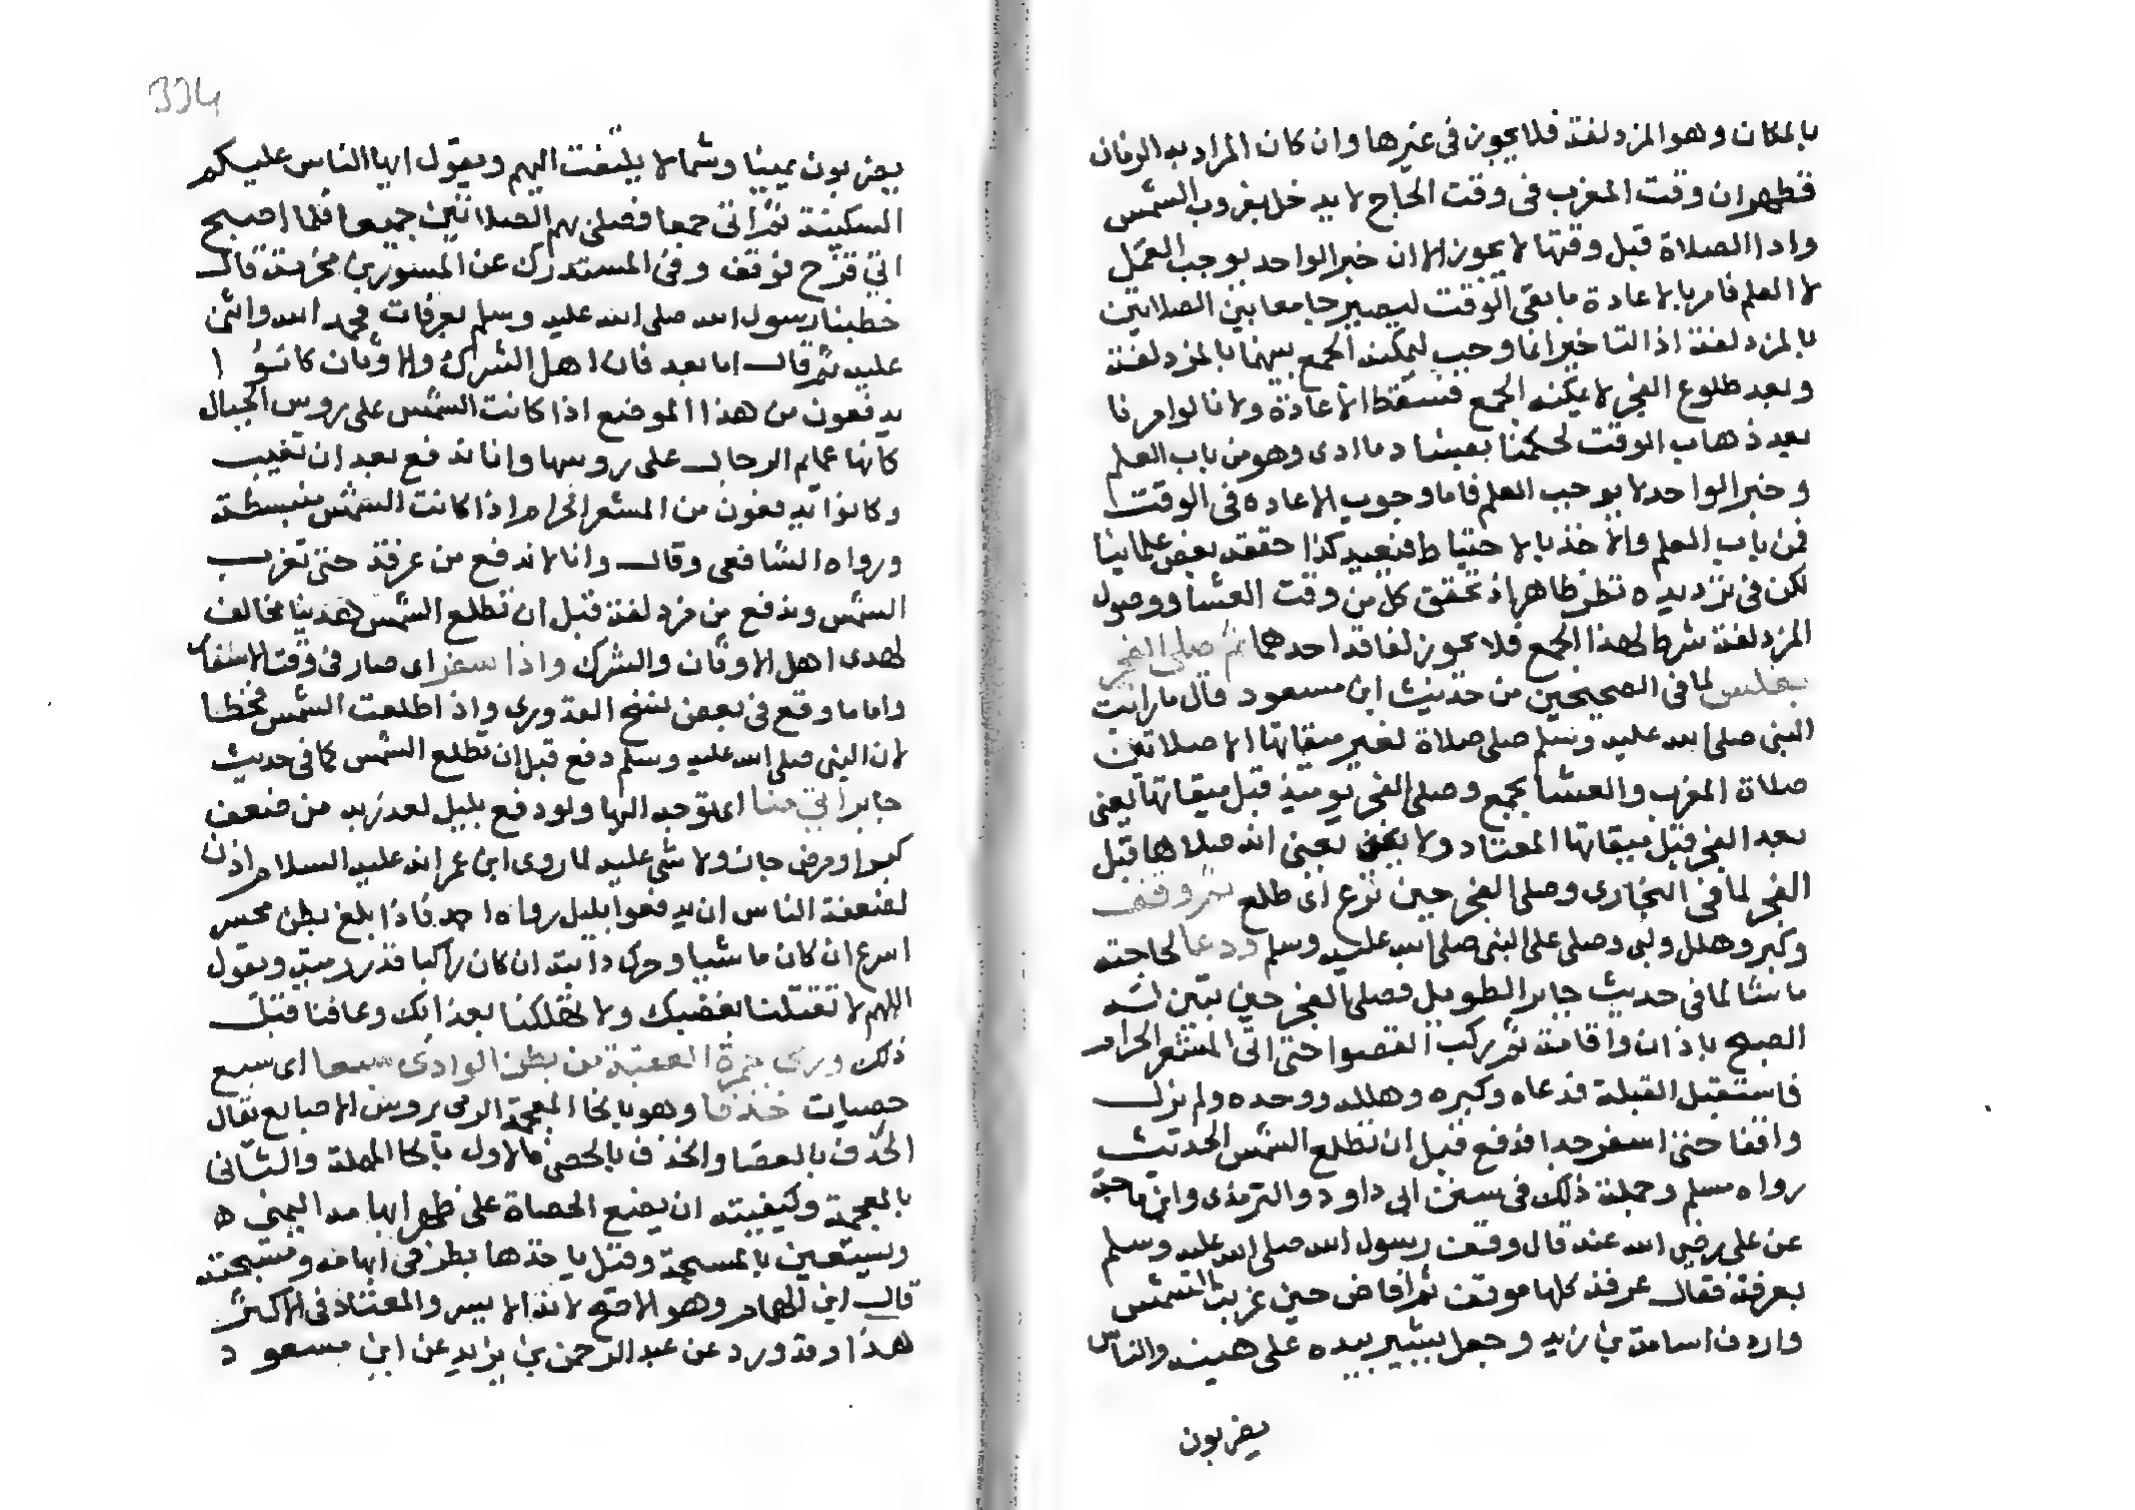 بالمكان وهو المزدلفة فلا يجوز في غيرها وان كان المراد به الزمان
فظهر ان وقت المغرب في وقت الحاج لا يدخل بغروب الشمس
واداالصلاة قبل وقتها لا يجوز الا ان خبر الواحد يوجب العمل
لا العلم فامر بالاعادة ما بقي الوقت ليصير جامعا بين الصلاتين
بالمزدلفة اذ التاخير انما وجب ليمكنه الجمع بينهما بالمزدلفة
وبعد طلوع الفجر لا يمكنه الجمع فسقط الاعادة ولانا لو امرنا
بعد ذهاب الوقت لحكمنا بفساد ما ادى وهو من باب العلم
وخبر الواحد لا يوجب العلم فاما وجوب الاعاده في الوقت
فمن باب العلم والاخذ بالاحتياط فنعيد كذا حققه بعض علماينا
لكن في ترديده نظر ظاهر اذ تحقق كل من وقت العشا ووصول
المزدلفة شرط لهذا الجمع فلا يجوز لفاقد احدهما ثم صلى الفجر
بغلس لما في الصحيحين من حديث ابن مسعود قال ما رايت
النبي صلى الله عليه وسلم صلى صلاة لغير ميقاتها الا صلاتين
صلاة المغرب والعشا بجمع وصلى الفجر يوميذ قبل ميقاتها يعني
بعد الفجر قبل ميقاتها المعتاد ولا يعني انه صلاها قبل
الفجر لما في البخاري وصلى الفجر حين نزع اي طلع ثم وقف
وكبر وهلل ولبى وصلى على النبي صلى الله عليه وسلم ودعا لحاجته
ماشا لما في حديث جابر الطويل فصلى الفجر حين تبين له
الصبح باذان واقامة ثم ركب القصوا حتى اتى المشعر الحرام
فاستقبل القبلة فدعاه وكبره وهلله ووحده ولم يزل
واقفا حتى اسفر جدا فدفع قبل ان تطلع الشمس الحديث
رواه مسلم وجملة ذلك في سنن ابي داود والترمذي وابن ماجة
عن علي رضي الله عنه قال وقف رسول الله صلى الله عليه وسلم
بعرفة فقال عرفة كلها موقف ثم افاض حين غربت الشمس
واردف اسامة بن زيد وجعل يشير بيده على هينته والناس
يضربون
334
يضربون يمينا وشمالا يلتفت اليهم ويقول ايها الناس عليكم
السكينة ثم اتى جمعا فصلى بهم الصلاتين جميعا فلما اصبح
اتى قزح فوقف وفي المستدرك عن المسور بن مخرمة قال
خطبنا رسول الله صلى الله عليه وسلم بعرفات فحمد الله واثنى
عليه ثم قال اما بعد فان اهل الشرك والاوثان كانوا
يدفعون من هذا الموضع اذا كانت الشمس على روس الجبال
كانها عمايم الرجال على روسها وانا ندفع بعد ان تغيب
وكانوا يدفعون من المشعر الحرام اذا كانت الشمس منبسطة
ورواه الشافعي وقال وانا لا ندفع من عرفة حتى تغرب
الشمس وندفع من مزدلفة قبل ان تطلع الشمس هدينا مخالف
لهدى اهل الاوثان والشرك واذا اسفر اى صار في وقت الاسفار
واما ما وقع في بعض نسخ القدوري واذا طلعت الشمس فخطا
لان النبي صلى الله عليه وسلم دفع قبل ان تطلع الشمس كما في حديث
جابر اتى منا اى توجه اليها ولو دفع بليل لعذر به من ضعف
كبر او مرض جاز ولا شي عليه لما روى ابن عمر انه عليه السلام اذن
لضعفة الناس ان يدفعوا بليل رواه احمد فاذا بلغ بطن محسر
اسرع ان كان ماشيا وحرك دابته ان كان راكبا قدر رمية ويقول
اللهم لا تقتلنا بغضبك ولا تهلكنا بعذابك وعافنا قبل
ذلك ورمى جمرة العقبة من بطن الوادى سبعا اى سبع
حصيات خذفا وهو بالخا المعجمة الرمي بروس الاصابع يقال
الحذف بالعصا والخذف بالحصى فالاول بالحا المهملة والثاني
بالمعجمة وكيفيته ان يضع الحصاة على ظهر ابهامه اليمنى ه
ويستعين بالمسبحة وقيل ياخذها بطرفي ابهامه ومسبحته
قال ابن الهمام وهو الاصح لانه الايسر والمعتاد في الاكثر
هذا وقد ورد عن عبد الرحمن بن يزيد عن ابن مسعود